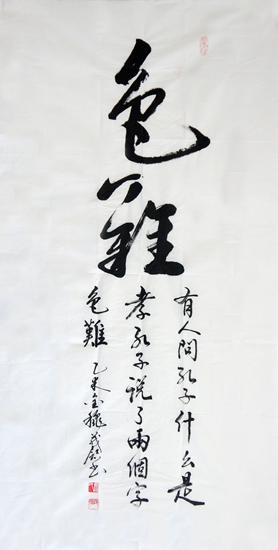 色難
有人問孔子什么是
孝孔子說了兩個字
色難
乙未金秋
書